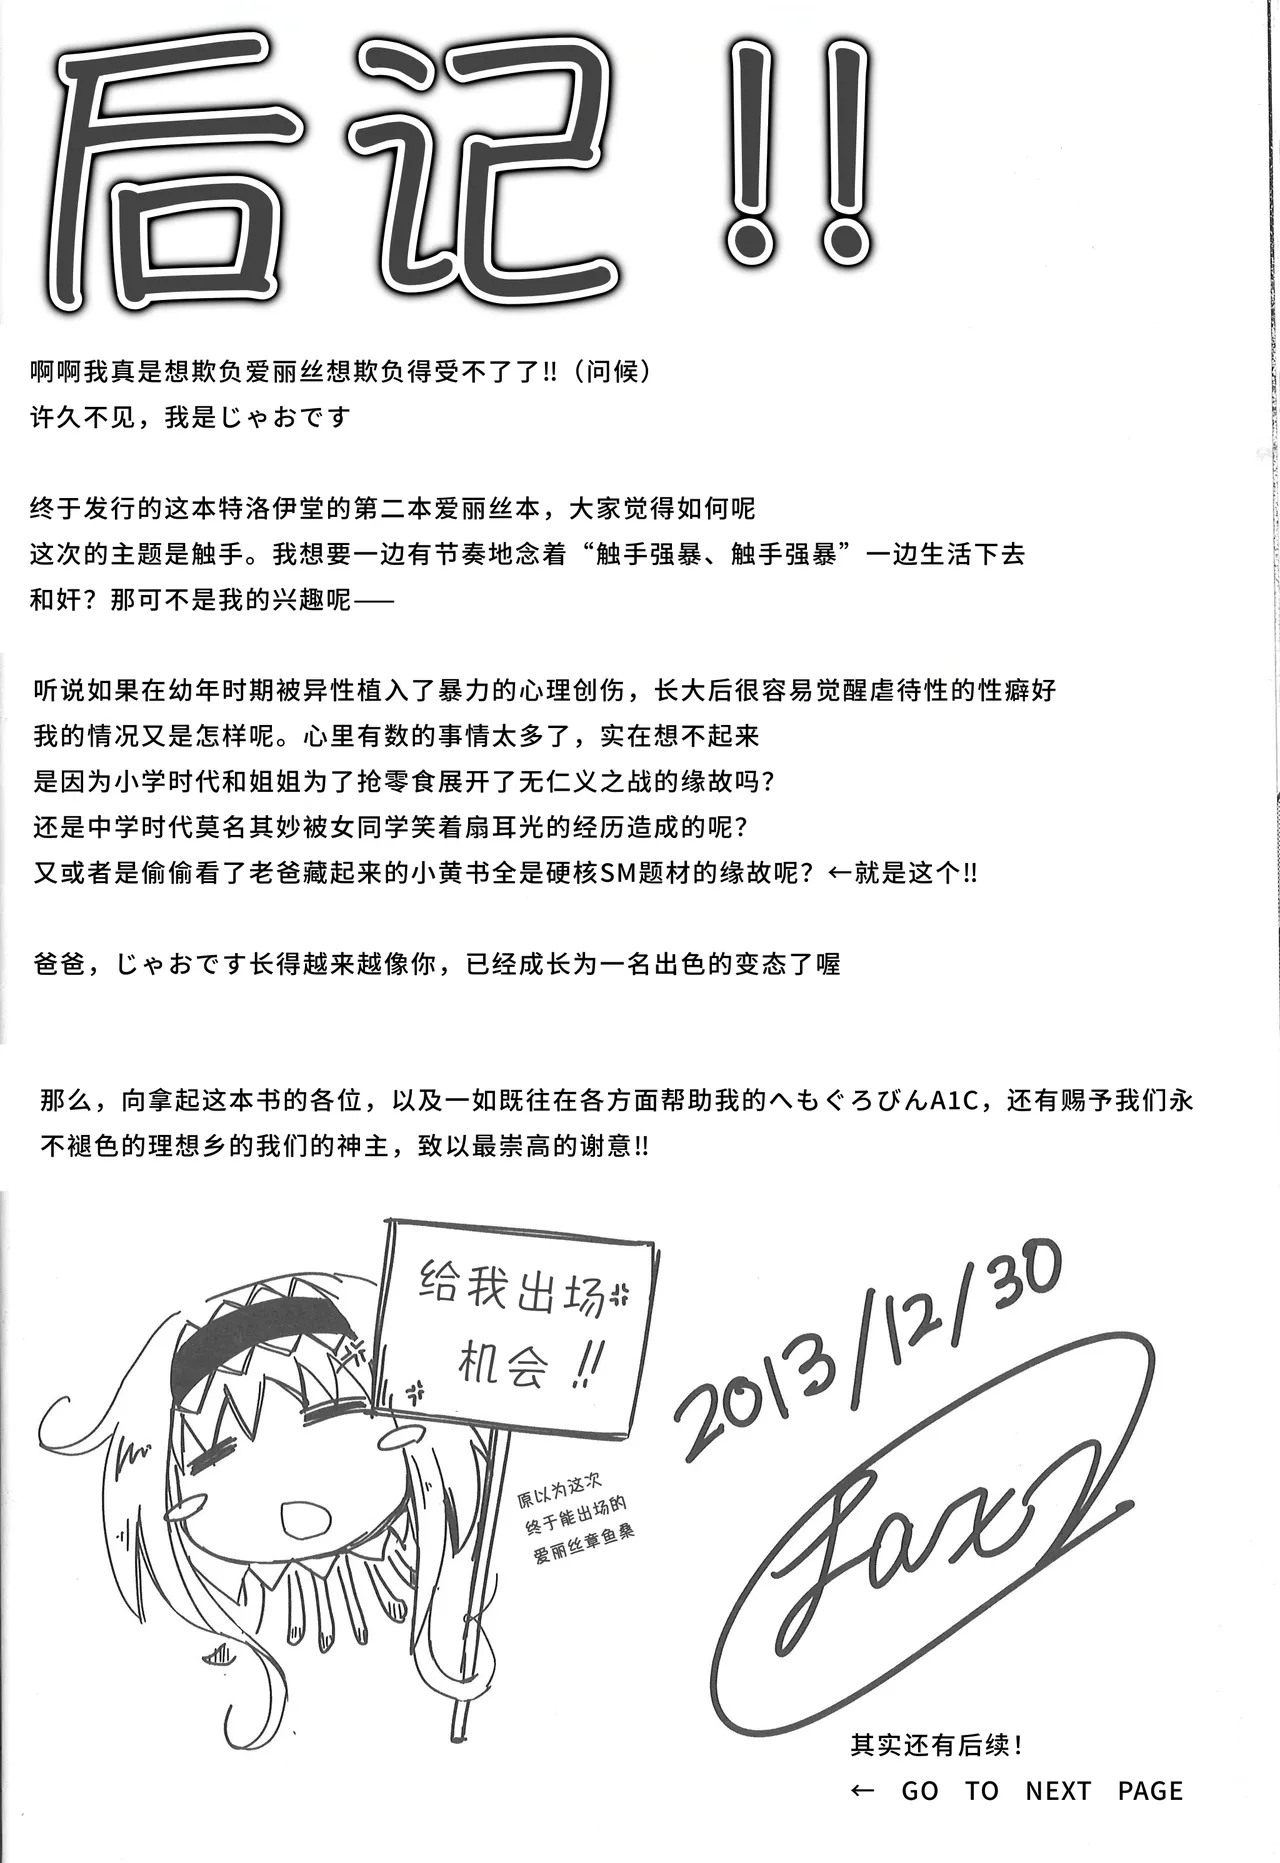 后记!!
啊啊我真是想欺负爱丽丝想欺负得受不了了!!（问候）
许久不见，我是じゃおです
终于发行的这本特洛伊堂的第二本爱丽丝本，大家觉得如何呢
这次的主题是触手。我想要一边有节奏地念着“触手强暴、触手强暴”一边生活下去
和奸？那可不是我的兴趣呢——
听说如果在幼年时期被异性植入了暴力的心理创伤，长大后很容易觉醒虐待性的性癖好
我的情况又是怎样呢。心里有数的事情太多了，实在想不起来
是因为小学时代和姐姐为了抢零食展开了无仁义之战的缘故吗？
还是中学时代莫名其妙被女同学笑着扇耳光的经历造成的呢？
又或者是偷偷看了老爸藏起来的小黄书全是硬核SM题材的缘故呢？←就是这个!!
爸爸，じゃおです长得越来越像你，已经成长为一名出色的变态了喔
那么，向拿起这本书的各位，以及一如既往在各方面帮助我的へもぐろびんA1C，还有赐予我们永
不褪色的理想乡的我们的神主，致以最崇高的谢意!!
给我出场
机会!!
原以为这次
终于能出场的
爱丽丝章鱼桑
2013/12/30
其实还有后续！
← GO TO NEXT PAGE